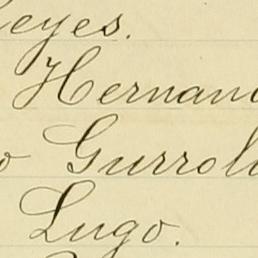 eyes.
Hernan
o Gurrol
Lugo.